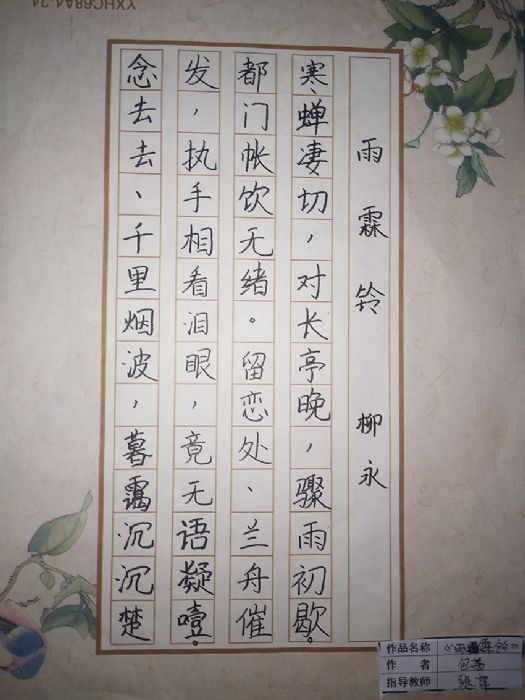 雨霖铃 柳永
寒蝉凄切，对长亭晚，骤雨初歇。
都门帐饮无绪。留恋处、兰舟催
发，执手相看泪眼，竟无语凝噎。
念去去、千里烟波，暮霭沉沉楚
作品名称 《雨霖铃》
作者
指导教师 张